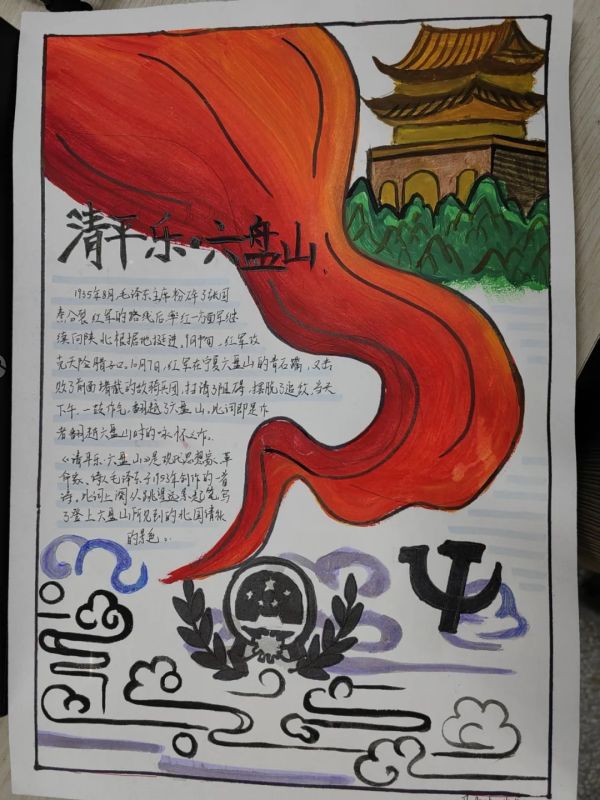 清平乐·六盘山
1935年8月,毛泽东主席粉碎了张国
焘分裂红军的路线后率红一方面军继
续向陕北根据地挺进,9月中旬,红军攻
克天险腊子口.10月7日,红军在宁夏六盘山的青石嘴,又击
败了前面堵截的敌骑兵团,扫清了阻碍,摆脱了追敌,当天
下午,一鼓作气,翻越了六盘山,此词即是作
者翻越六盘山时的咏怀之作。
《清平乐·六盘山》是现代思想家、革
命家、诗人毛泽东于1935年创作的一首
词,此词上阕从跳望远景起笔,写
了登上六盘山所见到的北国清秋
的景色。